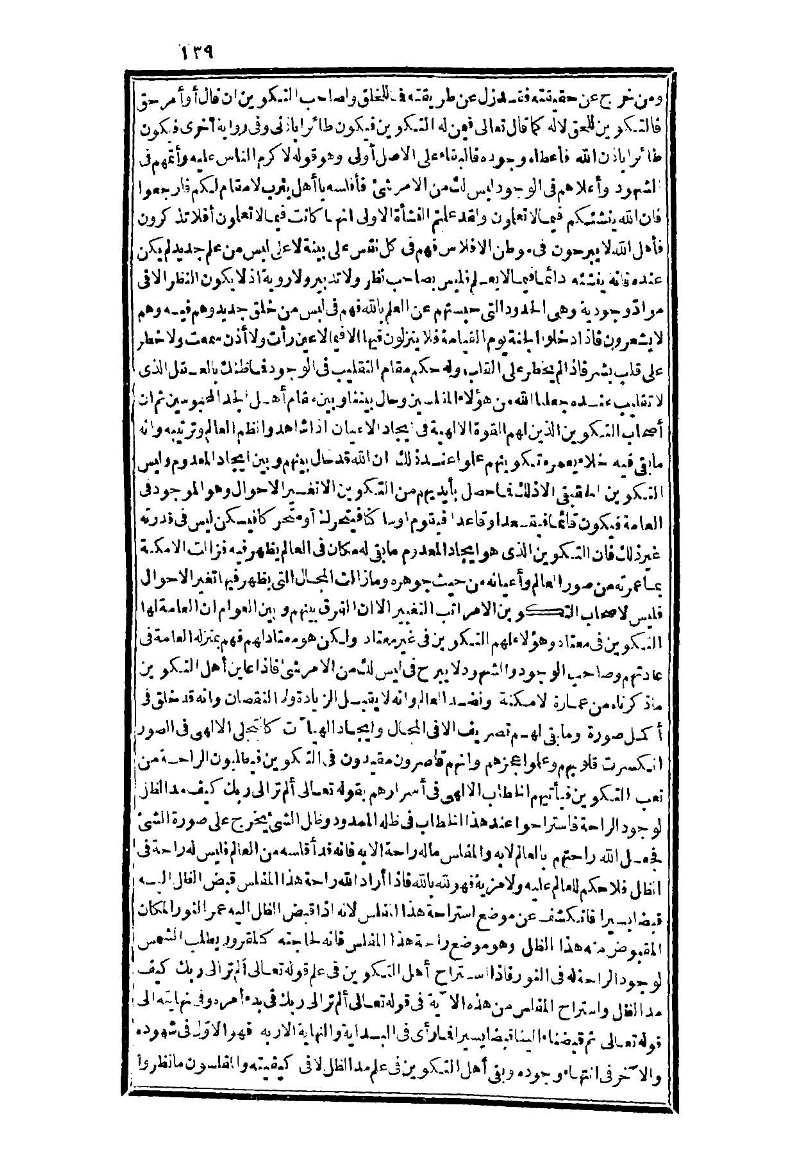 ١٣٩
ومن خرج عن حقيقته فقد زل عن طريقته فالخلق لصاحب التكوين ان قال أو أمر حق
فالتكوين للحق لا له كما قال تعالى فيمن له التكوين فيكون طائرا باذنى وفى رواية أخرى فيكون
طائرا باذن الله فأعطاه وجوده فالبقاء على الاصل أولى وهو قوله لاكرم الناس عليه وأتمهم فى
الشهود وأعلاهم فى الوجود ليس لك من الامر شئ فأفلسه يا أهل يثرب لا مقام لكم فارجعوا
فان الله ينشئكم فيما لا تعلمون ولقد علمتم النشأة الاولى انها كانت فيما لا تعلمون أفلا تذكرون
فأهل الله لا يبرحون فى موطن الافلاس فهم فى كل نفس على بينة لا عن لبس من علم جديد لم يكن
عنده فانه ينشئه دائما فيما لا يعلم فليس بصاحب نظر ولا تدبير ولا روية اذ لا يكون النظر الا فى
مواد وجودية وهى الحدود التى حبستهم عن العلم بالله فهم فى لبس من خلق جديد وهم فيه وهم
لا يشعرون فاذا دخلوا الجنة يوم القيامة فلا ينزلون فيها الا فيما لا عين رأت ولا أذن سمعت ولا خطر
على قلب بشر فاذا لم يخطر على القلب وله حكم مقام التقليب فى الوجود فما ظنك بالعقل الذى
لا تقليب عنده جعلنا الله من هؤلاء المفلسين وحال بيننا وبين مقام أهل الجد المحبوسين ثم ان
أصحاب التكوين الذين لهم القوة الالهية فى ايجاد الاعيان اذا شاهدوا نظم العالم وترتيبه وانه
ما بقى فيه خلاء يعمره تكوينهم علموا عند ذلك ان الله قد حال بينهم وبين ايجاد المعدوم وليس
التكوين الحقيقى الا ذلك فما حصل بأيديهم من التكوين الا تغيير الاحوال وهو الموجود فى
العامة فيكون قائما فيقعد أو قاعدا فيقوم أو ساكنا فيتحرك أو متحركا فيسكن ليس فى قدرته
غير ذلك فان التكوين الذى هو ايجاد المعدوم ما بقى له مكان فى العالم يظهر فيه فزالت الامكنة
بما عمرته من صور العالم وأعيانه من حيث جوهره وما زالت المحال التى يظهر فيها تغير الاحوال
فليس لاصحاب التكوين الا مراتب التغيير الا ان الفرق بينهم وبين العوام ان العامة لها
التكوين فى معتاد وهؤلاء لهم التكوين فى غير معتاد ولكن هو معتاد لهم فهم بمنزلة العامة فى
عادتهم وصاحب الوجود والشهود لا يبرح فى ليس لك من الامر شئ فاذا عاين أهل التكوين
ما ذكرناه من عمارة الامكنة ونضد العالم وانه لا يقبل الزيادة ولا النقصان وانه قد خلق فى
أكمل صورة وما بقى لهم تصريف الا فى المحال وايجاد الهيآت كالتجلى الالهى فى الصور
انكسرت قلوبهم وعلموا عجزهم وانهم قاصرون مقيدون فى التكوين فيطلبون الراحة من
تعب التكوين فيأتيهم الخطاب الالهى فى أسرارهم بقوله تعالى ألم تر الى ربك كيف مد الظل
لوجود الراحة فاستراحوا عند هذا الخطاب فى ظله الممدود وظل الشئ يخرج على صورة الشئ
فجعل الله راحتهم بالعالم لا به والمفلس ما له راحة الا به فانه قد أفلسه من العالم فليس له راحة فى
الظل فلا حكم للعالم عليه ولا مزية فهو لله بالله فاذا أراد الله راحة هذا المفلس قبض الظل اليه
قبضا يسيرا فانكشف عن موضع استراحة هذا المفلس لانه اذا قبض الظل اليه عمر النور المكان
المقبوض منه هذا الظل وهو موضع راحة هذا المفلس فانه لحاجته كالمقرور يطلب الشمس
لوجود الراحة له فى النور فاذا استراح أهل التكوين فى علم قوله تعالى ألم تر الى ربك كيف
مد الظل واستراح المفلس من هذه الآية فى قوله تعالى ألم تر الى ربك فى بدء أمره وفى نهايته الى
قوله تعالى ثم قبضناه الينا قبضا يسيرا فما رأى فى البداية والنهاية الا ربه فهو الاول فى شهوده
والآخر فى انتهاء وجوده وبقى أهل التكوين فى علم مد الظل لا فى كيفيته والمفلسون ما نظروا